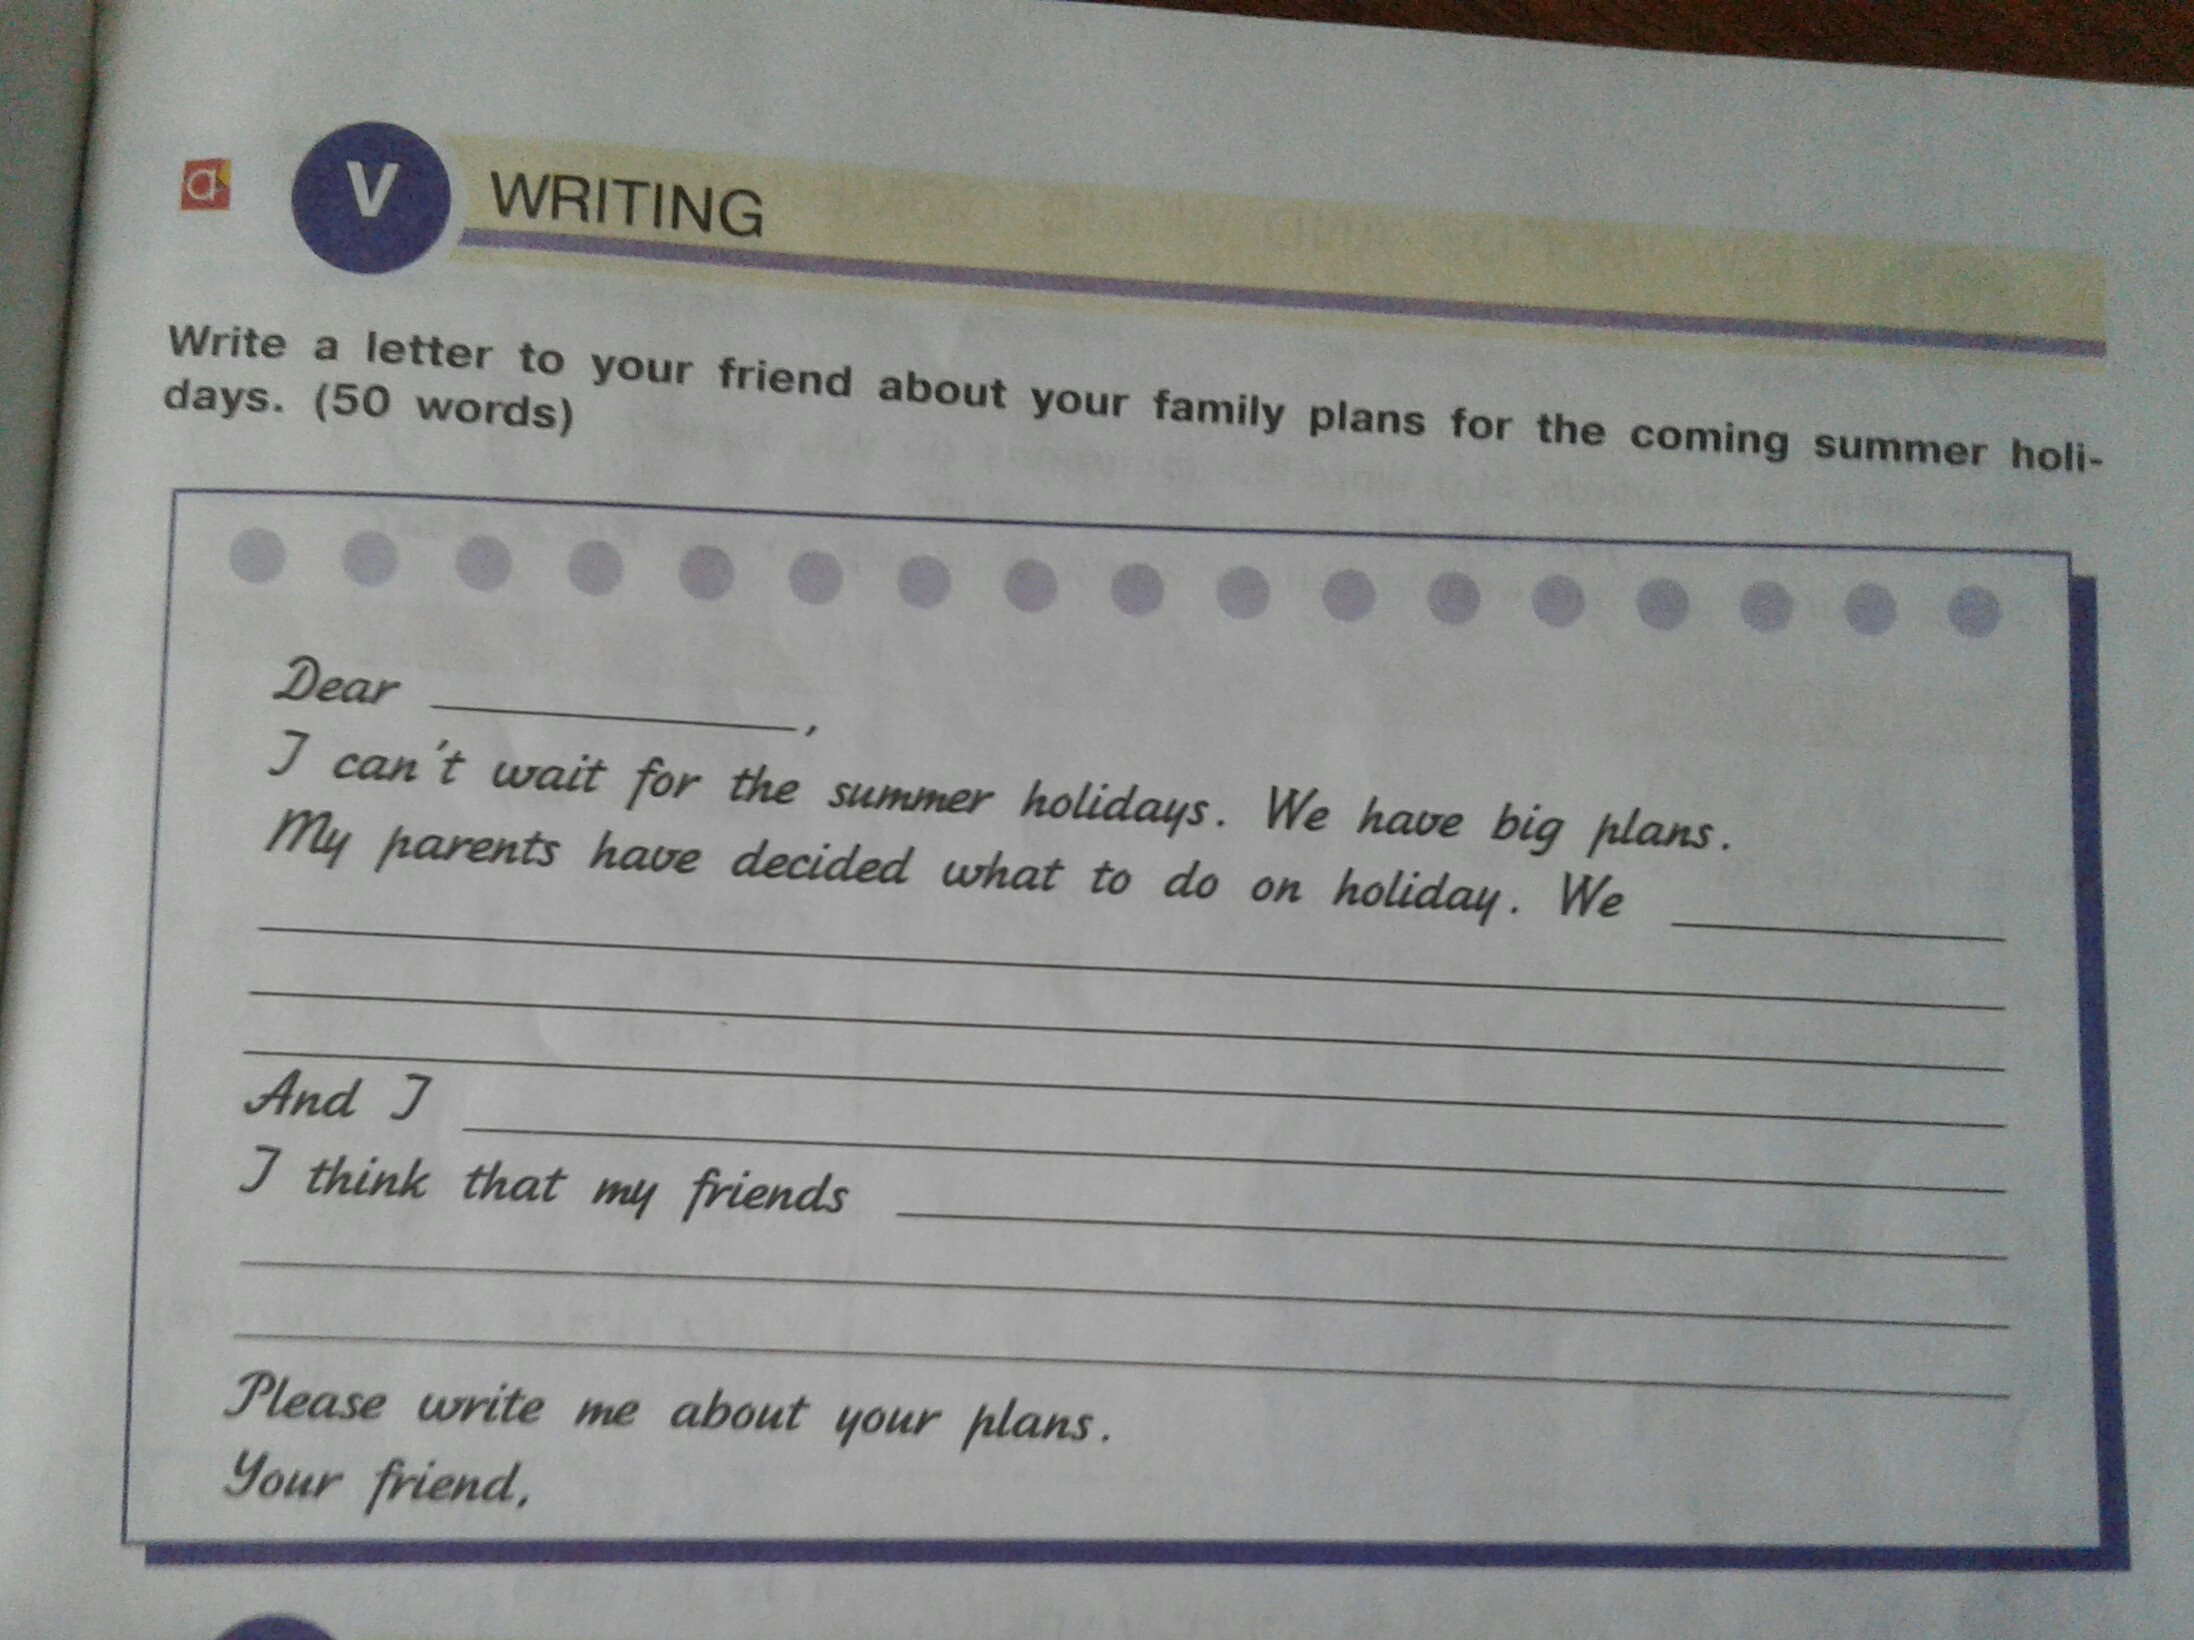 a
V
WRITING
Write a letter to your friend about your family plans for the coming summer holi-
days. (50 words)
Dear ____________,
I can't wait for the summer holidays. We have big plans.
My parents have decided what to do on holiday. We ____________
And I ____________
I think that my friends ____________
Please write me about your plans.
Your friend,